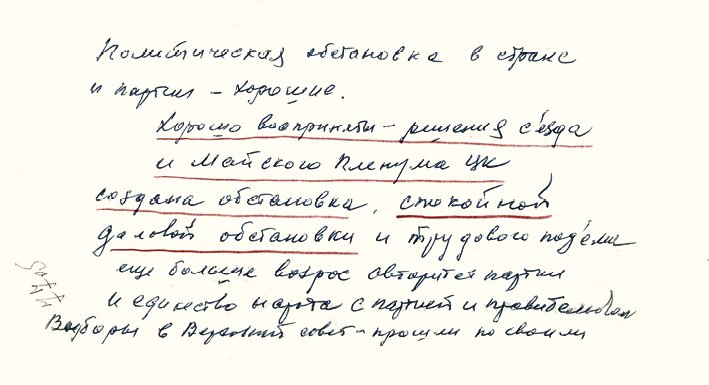 Политическая обстановка в стране
и партии – хорошие.
Хорошо восприняты – решения с'езда
и Майского Пленума ЦК
создана обстановка, спокойной
деловой обстановки и трудового под'ема
еще больше возрос авторитет партии
и единство народа с партией и правительством
Выборы в Верховный совет – прошли по своим